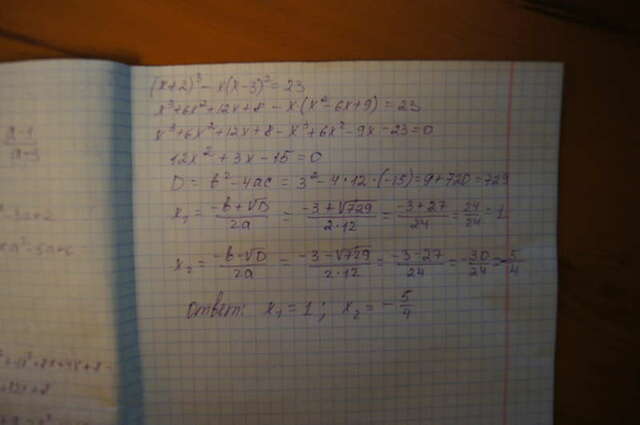 (x+2)³ - x(x-3)² = 23
x³+6x²+12x+8 - x(x²-6x+9) = 23
x³+6x²+12x+8 - x³+6x²-9x-23=0
12x² + 3x - 15 = 0
D = b² - 4ac = 3² - 4·12·(-15) = 9+720 = 729
x₁ = (-b+√D)/2a = (-3+√729)/2·12 = (-3+27)/24 = 24/24 = 1
x₂ = (-b-√D)/2a = (-3-√729)/2·12 = (-3-27)/24 = -30/24 = -5/4
Ответ: x₁ = 1; x₂ = -5/4